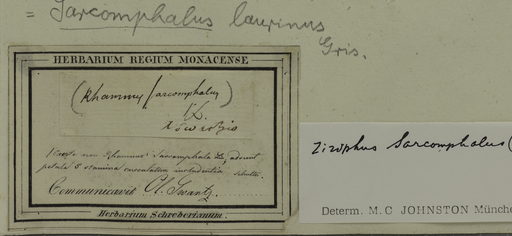 = Sarcomphalus laurinus
Gris.
HERBARIUM REGIUM MONACENSE
(Rhamnus sarcomphalus)
non Rhamnus Sarcomphalus adsunt
petala 5 stamina includentia
Communicavit Ol. Swartz.
Herbarium Schreberianum.
Zizyphus Sarcomphalus (
Determ. M.C JOHNSTON Münche